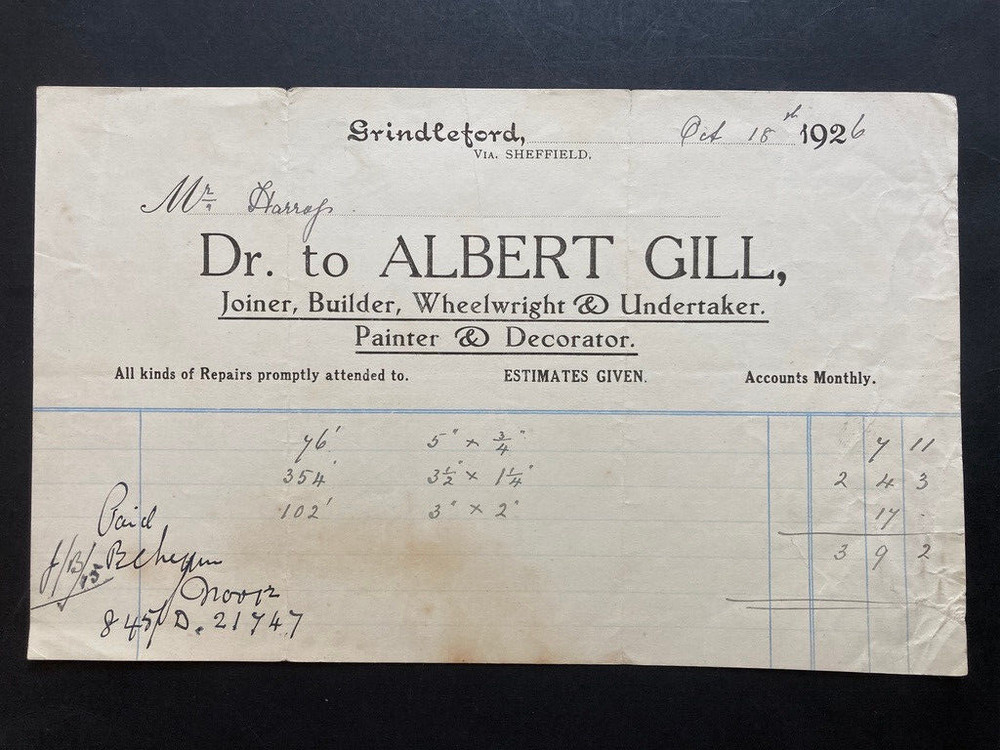 Grindleford, Oct 18th 1926
VIA. SHEFFIELD.
Mr Harrop
Dr. to ALBERT GILL,
Joiner, Builder, Wheelwright & Undertaker.
Painter & Decorator.
All kinds of Repairs promptly attended to. ESTIMATES GIVEN. Accounts Monthly.
76' 5" × 3/4" 7 11
354' 3½" × 1¼" 2 4 3
102' 3" × 2" 17 -
3 9 2
Paid
8 45/D. 21747